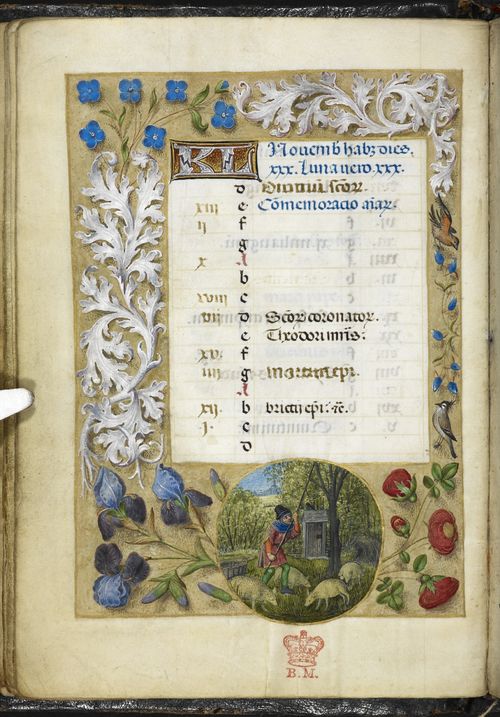 KL Novemb habꝫ dies.
xxx. Luna vero .xxx.
d Omniuꝫ scõꝝ
xiii e Cõmemoracio aĩaꝝ.
ii f
g
x A
b
xviii c
vii d Scõꝝ coronatoꝝ.
e Theodori mr̃is.
xv. f
iiii g Martini ep̃i.
A
xii. b bricii ep̃i. ⁊c̃.
i. c
d
B.M.